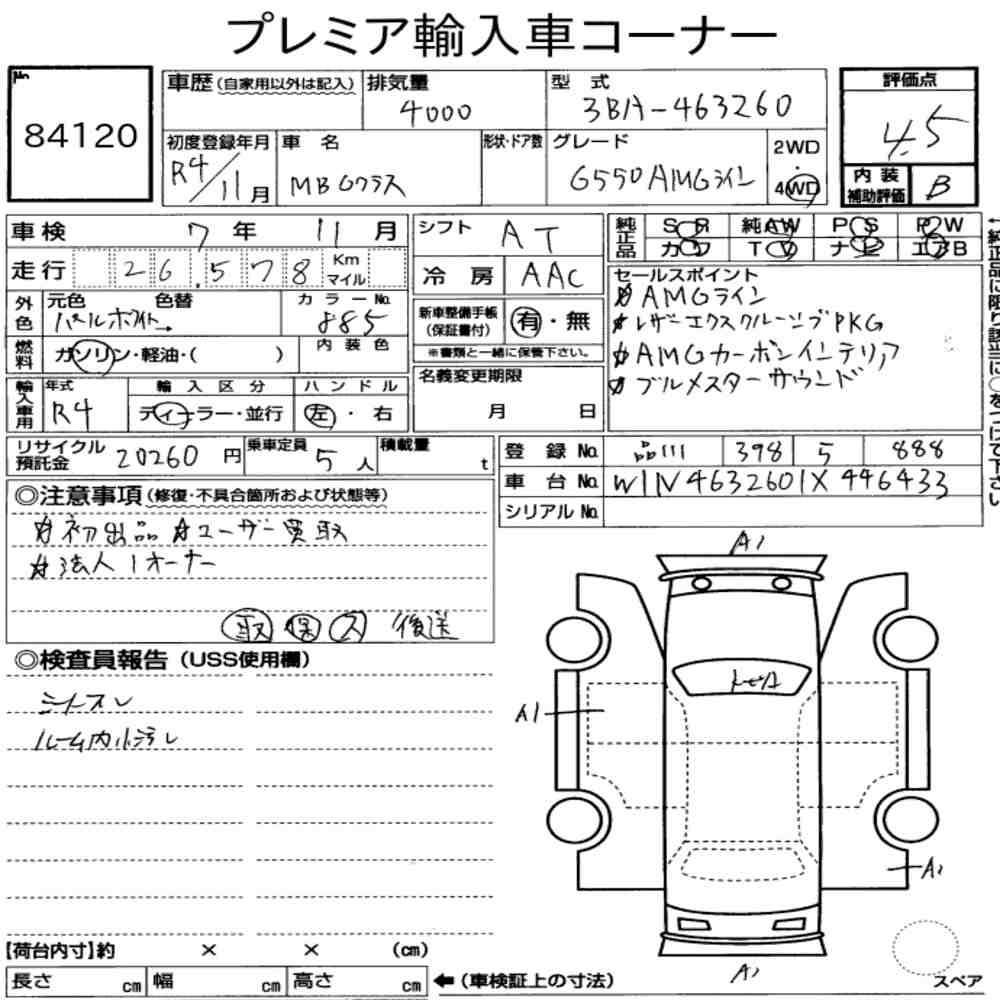 プレミア輸入車コーナー
No.
84120
車歴 (自家用以外は記入)
排気量
4000
型式
3BA-463260
評価点
4.5
初度登録年月
R4/11月
車名
MB Gクラス
形状・ドア数
グレード
G550 AMGライン
2WD
・
4WD
内装
補助評価
B
車検 7年 11月
シフト AT
純正品
SR 純AW PS PW
カワ TV ナビ エアB
走行 26.578 Km マイル
冷房 AAC
セールスポイント
AMGライン
レザーエクスクルーシブPKG
AMGカーボンインテリア
ブルメスターサウンド
←純正品に限り該当に○をつけて下さい
外色
元色 色替
パールホワイト→
カラーNo.
885
新車整備手帳
(保証書付)
有・無
※書類と一緒に保管下さい。
燃料
ガソリン・軽油・( )
内装色
名義変更期限
月 日
輸入車用
年式
R4
輸入区分
ディーラー・並行
ハンドル
左・右
リサイクル
預託金
20260円
乗車定員
5人
積載量
t
登録No. 品川 398 5 888
車台No. W1N4632601X446433
シリアルNo.
◎注意事項(修復・不具合箇所および状態等)
初出品 ユーザー買取
法人1オーナー
取 保 ス 後送
◎検査員報告(USS使用欄)
シートスレ
ルーム内小汚レ
A1
A1
A1
A1
【荷台内寸】約 × × (cm)
長さ cm 幅 cm 高さ cm ←(車検証上の寸法)
スペア